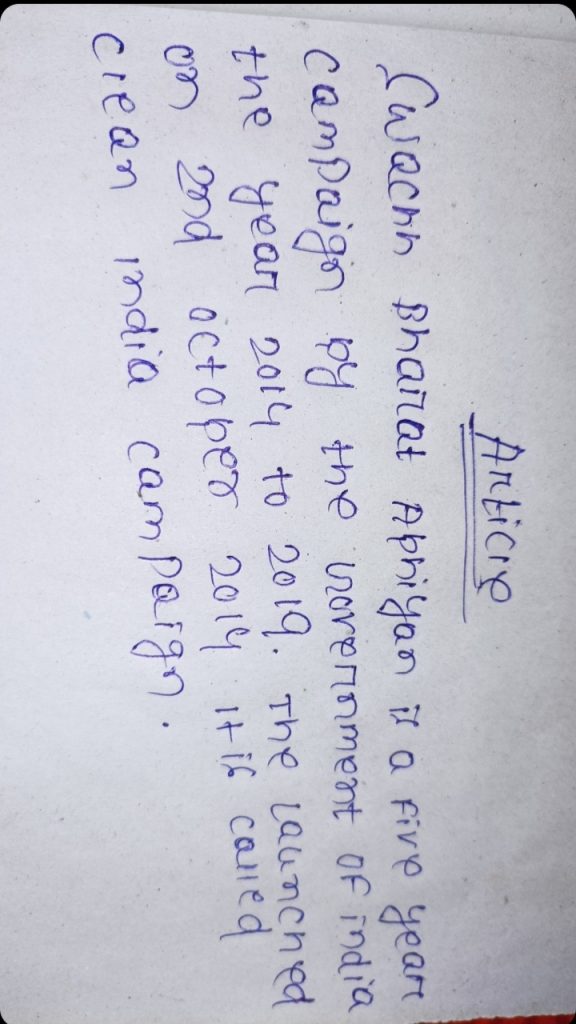 Article
Swachh Bharat Abhiyan is a five year
campaign by the Government of india
the year 2014 to 2019. The launched
on 2nd october 2014 it is called
clean india campaign.